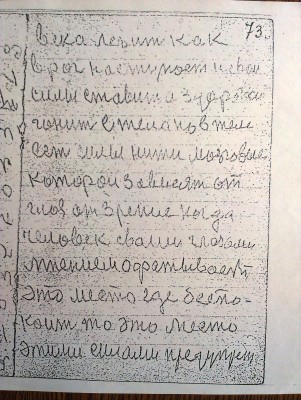 73.
века лечит как
враг наступает и свои
силы ставит а здоровье
гонит с тела но в теле
сет силы нити мозговые
которой зависят от
глаз от зрение когда
человек своими глазами
мнением обратывает
это место где беспо-
коит то это место
этими силами предупреж